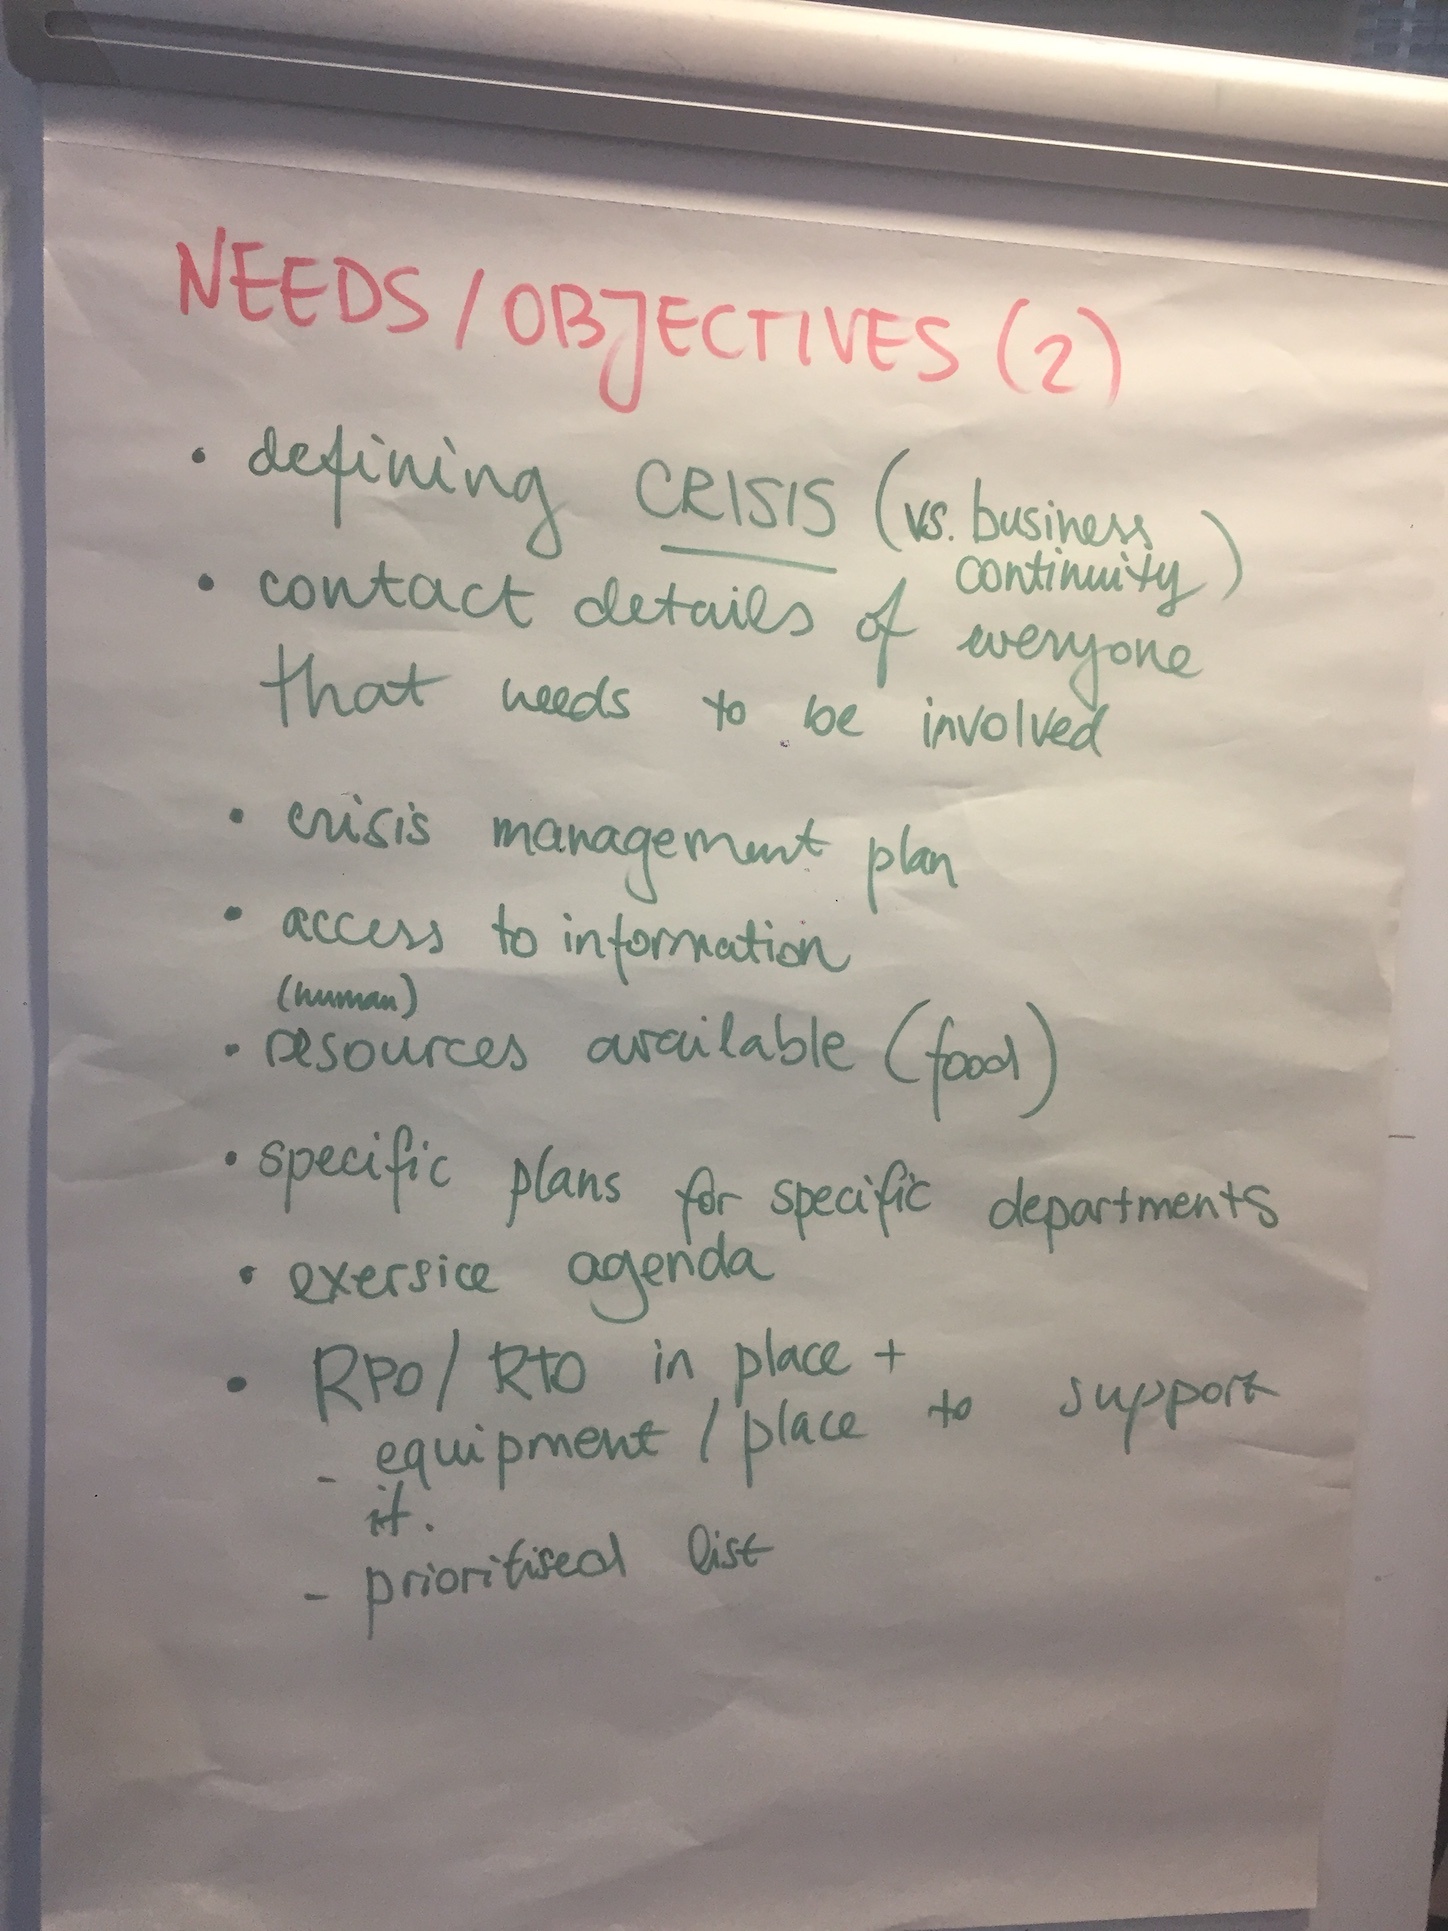 NEEDS/OBJECTIVES (2)
• defining CRISIS (vs. business
continuity)
• contact details of everyone
that needs to be involved
• crisis management plan
• access to information
(human)
• resources available (food)
• specific plans for specific departments
• exersice agenda
• RPO/RTO in place +
- equipment / place to support
it.
- prioritised list